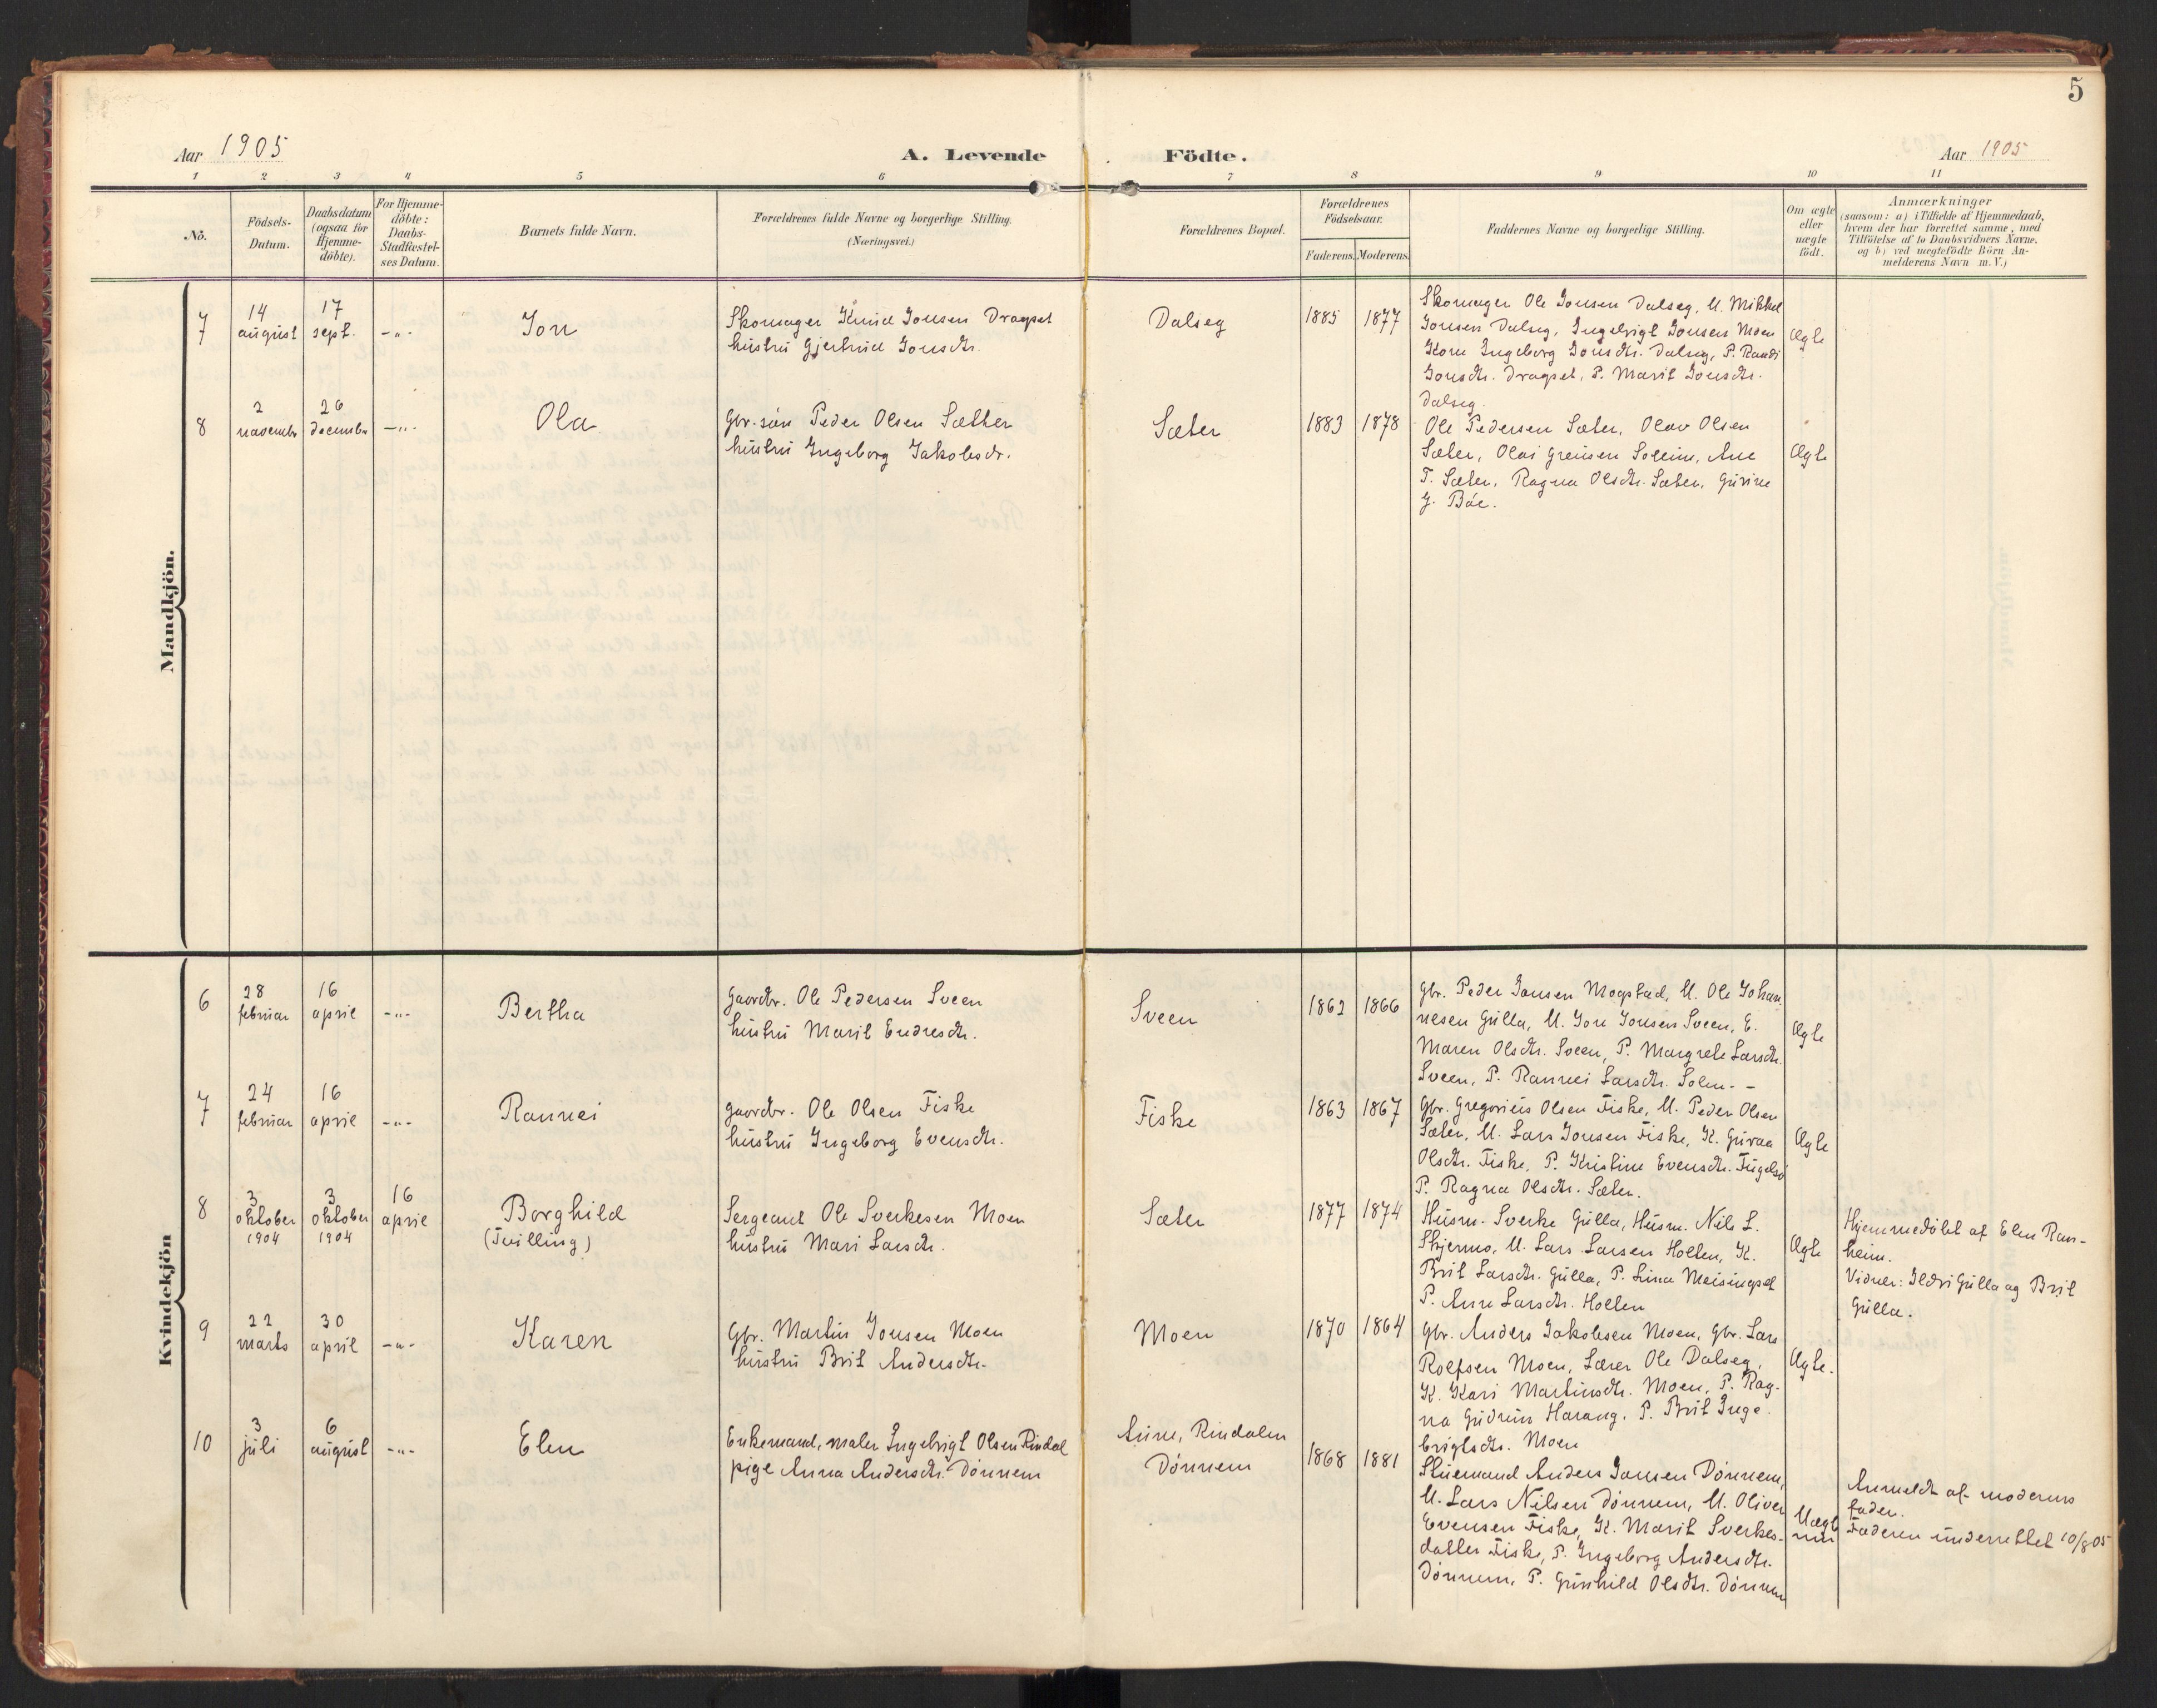 5
Aar 1905
A. Levende Födte.
Aar 1905
1 2 3 4 5 6 7 8 9 10 11
No.
Födsels-
Datum.
Daabsdatum
(ogsaa for
Hjemme-
döbte).
For Hjemme-
döbte:
Daabs-
Stadfæstel-
ses Datum.
Barnets fulde Navn.
Forældrenes fulde Navne og borgerlige Stilling.
(Næringsvei.)
Forældrenes Bopæl.
Forældrenes
Födselsaar.
Faderens. Moderens.
Faddernes Navne og borgerlige Stilling.
Om ægte
eller
uægte
födt.
Anmærkninger
(saasom: a) i Tilfælde af Hjemmedaab,
hvem der har forrettet samme, med
Tilföielse af to Daabsvidners Navne,
og b) ved uægtefödte Börn An-
melderens Navn m. V.)
Mandkjön.
7
14
august
17
sept.
-"-
Jon
Skomager Knud Jonsen Dragset
hustru Gjertrud Jonsdtr.
Dalseg
1885
1877
Skomager Ole Jonsen Dalseg, U. Mikkel
Jonsen Dalseg, Ingebrigt Jonsen Moen
Kone Ingeborg Jonsdtr. Dalseg, P. Randi
Jonsdtr. Dragset, P. Marit Jonsdtr.
Dalseg.
Ægte
8
2
november
26
december
-"-
Ola
Gbr.-søn Peder Olsen Sæther
hustru Ingeborg Jakobsdr.
Sæter
1883
1878
Ole Pedersen Sæter, Olav Olsen
Sæter, Olai Soleim, Ane
T. Sæter, Ragna Olsdtr. Sæter, Gurine
G. Bøe.
Ægte
Kvindekjön
6
28
februar
16
april
-"-
Bertha
Gaardbr. Ole Pedersen Sveen
hustru Marit Endresdtr.
Sveen
1862
1866
Gbr. Peder Jansen Mogstad, U. Ole Johan
nesen Gulla, U. Jon Jonsen Sveen, E.
Maren Olsdtr. Sveen, P. Margrete Larsdtr.
Sveen, P. Rannei Larsdtr. Solem. -
Ægte
7
24
februar
16
april
-"-
Rannei
Gaardbr. Ole Olsen Fiske
hustru Ingeborg Evensdtr.
Fiske
1863
1867
Gbr. Gregorius Olsen Fiske, U. Peder Olsen
Sæter, U. Lars Jonsen Fiske, K. Guraa
Olsdtr. Fiske, P. Kristine Evensdtr. Fugelsø
P. Ragna Olsdtr. Sæter.
Ægte
8
3
oktober
1904
3
oktober
1904
16
april
Borghild
(Tvilling)
Sergeant Ole Sverkesen Moen
hustru Mari Larsdtr.
Sæter
1877
1874
Husm. Sverke Gulla, Husm. Nils L.
Skjermo, U. Lars Larsen Holten, K.
Brit Larsdtr. Gulla, P. Lina Meisingset
P. Anne Larsdtr. Holten
Ægte
Hjemmedøbt af Elen Ran-
heim.
Vidner: Ildri Gulla og Brit
Gulla.
9
22
marts
30
april
-"-
Karen
Gbr. Martin Jonsen Moen
hustru Brit Andersdtr.
Moen
1870
1864
Gbr. Anders Jakobsen Moen, Gbr. Lars
Rolfsen Moen, Lærer Ole Dalseg,
K. Kari Martinsdtr. Moen, P. Rag-
na Gudrun Harang, P. Brit Inge-
brigtsdtr. Moen
Ægte.
10
3
juli
6
august
-"-
Elen
Enkemand, maler Ingebrigt Olsen Rindal
pige Anna Andersdtr. Dønnem
Aune, Rindalen
Dønnem
1868
1881
Stuemand Anders Jansen Dønnem,
U. Lars Nilsen Dønnem, U. Oliver
Evensen Fiske, K. Marit Sverkes-
datter Fiske, P. Ingeborg Andersdtr.
Dønnem, P. Gunhild Olsdtr. Dønnem
Uægte
Anmeldt af moderens
fader.
Faderen underrettet 10/8 05